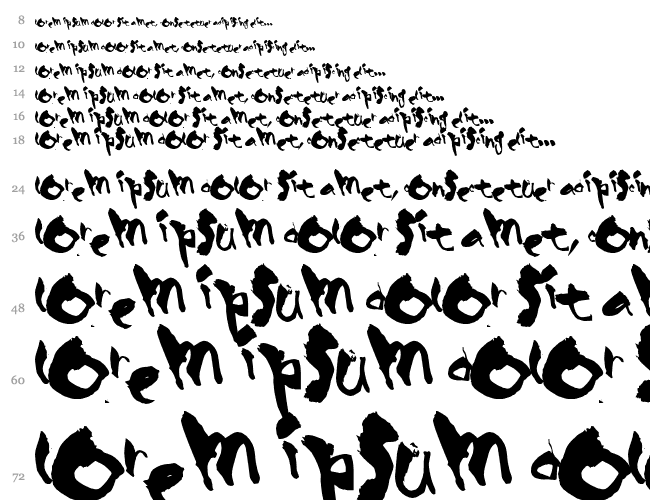 8 lorem ipsum dolor sit amet, consetetuer adipising elit...
10 lorem ipsum dolor sit amet, consetetuer adipisicing elit...
12 lorem ipsum dolor sit amet, consetetuer adipisicing elit...
14 lorem ipsum dolor sit amet, consetetuer adipisicing elit...
16 lorem ipsum dolor sit amet, consetetuer adipisicing elit...
18 lorem ipsum dolor sit amet, consetetuer adipisicing elit...
24 lorem ipsum dolor sit amet, consetetuer adipisicin
36 lorem ipsum dolor sit amet, con
48 lorem ipsum dolor sit a
60 lorem ipsum dolor s
72 lorem ipsum do